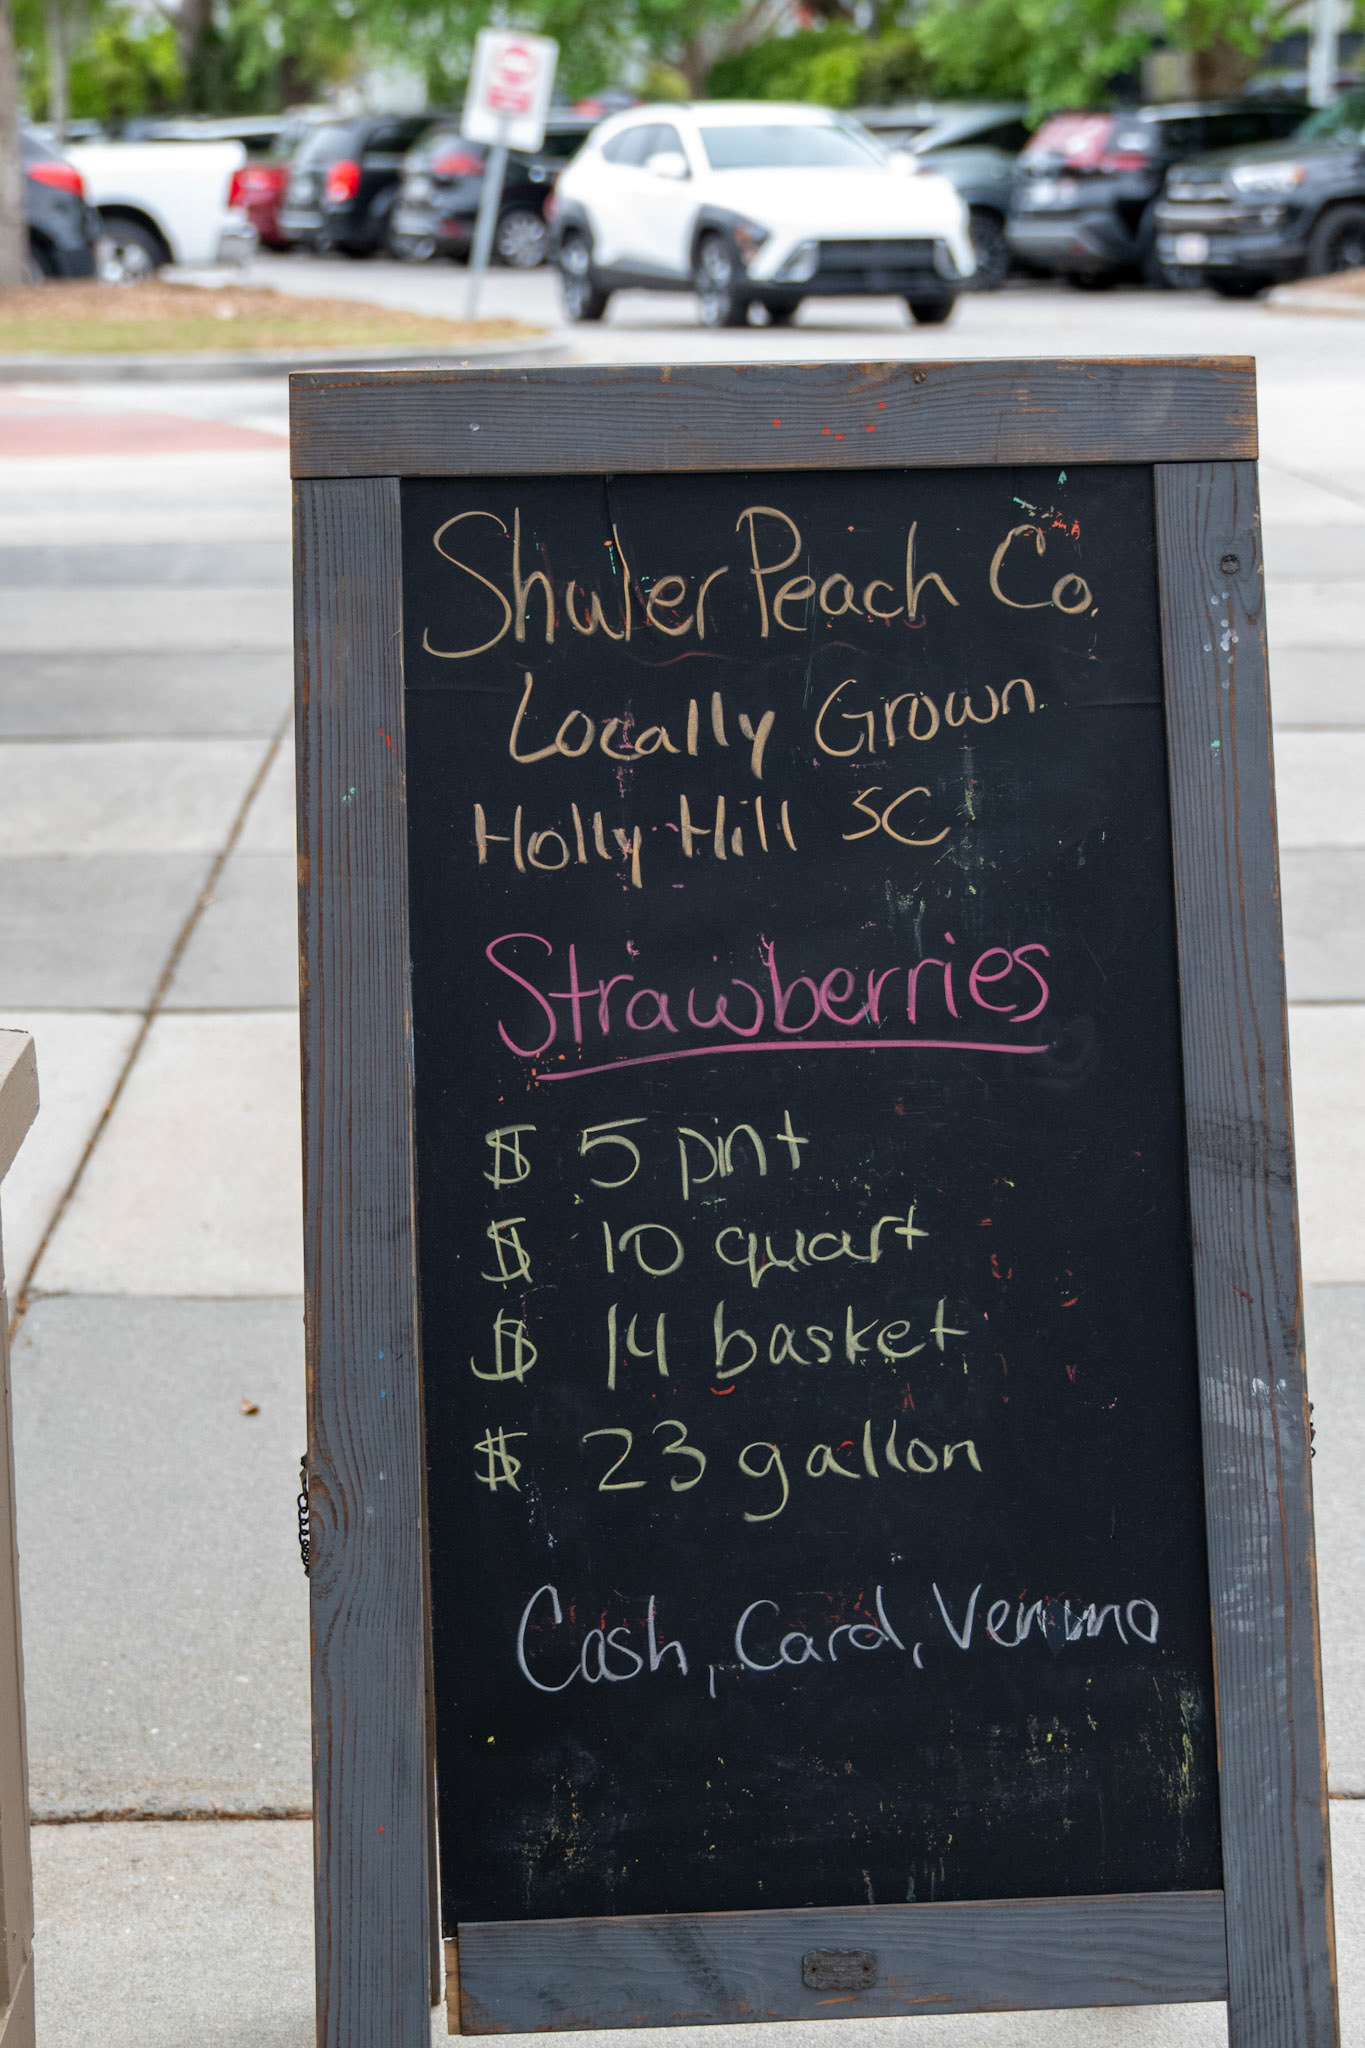 Shuler Peach Co.
Locally Grown
Holly Hill SC
Strawberries
$ 5 pint
$ 10 quart
$ 14 basket
$ 23 gallon
Cash, Card, Venmo